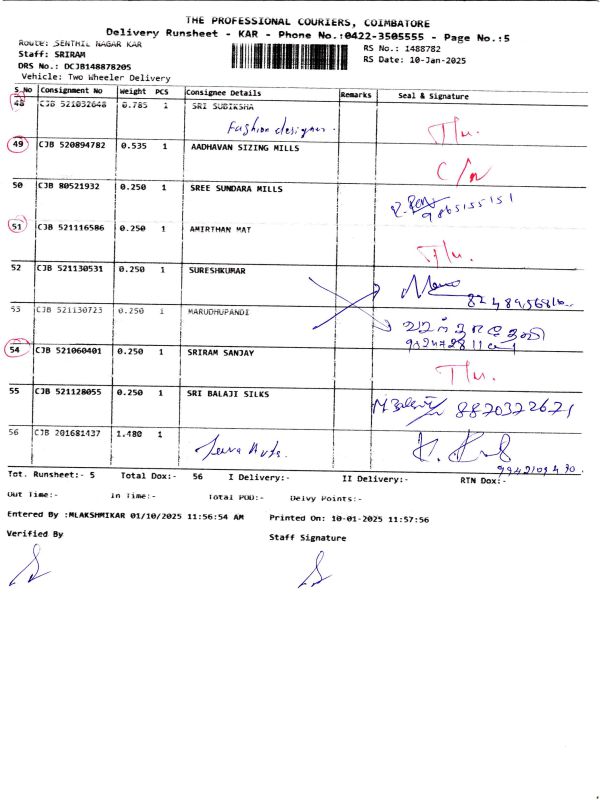 THE PROFESSIONAL COURIERS, COIMBATORE
Delivery Runsheet - KAR - Phone No.:0422-3505555 - Page No.:5
Route: SENTHIL NAGAR KAR
RS No.: 1488782
Staff: SRIRAM
RS Date: 10-Jan-2025
DRS No.: DCJB148878205
Vehicle: Two Wheeler Delivery
S.No Consignment No Weight PCS Consignee Details Remarks Seal & Signature
48 CJB 521032648 0.785 1 SRI SUBIKSHA
Fashion designer.
49 CJB 520894782 0.535 1 AADHAVAN SIZING MILLS
C/N
50 CJB 80521932 0.250 1 SREE SUNDARA MILLS
9865155151
51 CJB 521116586 0.250 1 AMIRTHAN MAT
52 CJB 521130531 0.250 1 SURESHKUMAR
53 CJB 521130723 0.250 1 MARUDHUPANDI
54 CJB 521060401 0.250 1 SRIRAM SANJAY
55 CJB 521128055 0.250 1 SRI BALAJI SILKS
8870322671
56 CJB 201681437 1.480 1
Tot. Runsheet:- 5 Total Dox:- 56 I Delivery:- II Delivery:- RTN Dox:-
Out Time:- In Time:- Total POD:- Delvy Points:-
Entered By :MLAKSHMIKAR 01/10/2025 11:56:54 AM Printed On: 10-01-2025 11:57:56
Verified By
Staff Signature